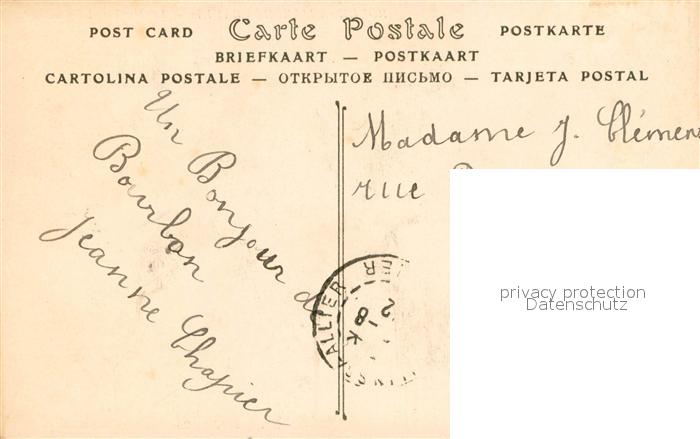 POST CARD Carte Postale POSTKARTE
BRIEFKAART — POSTKAART
CARTOLINA POSTALE — ОТКРЫТОЕ ПИСЬМО — TARJETA POSTAL
Un Bonjour de
Bourbon
Jeanne Chapier
Madame J. Clémen
rue
ALLIER
privacy protection
Datenschutz